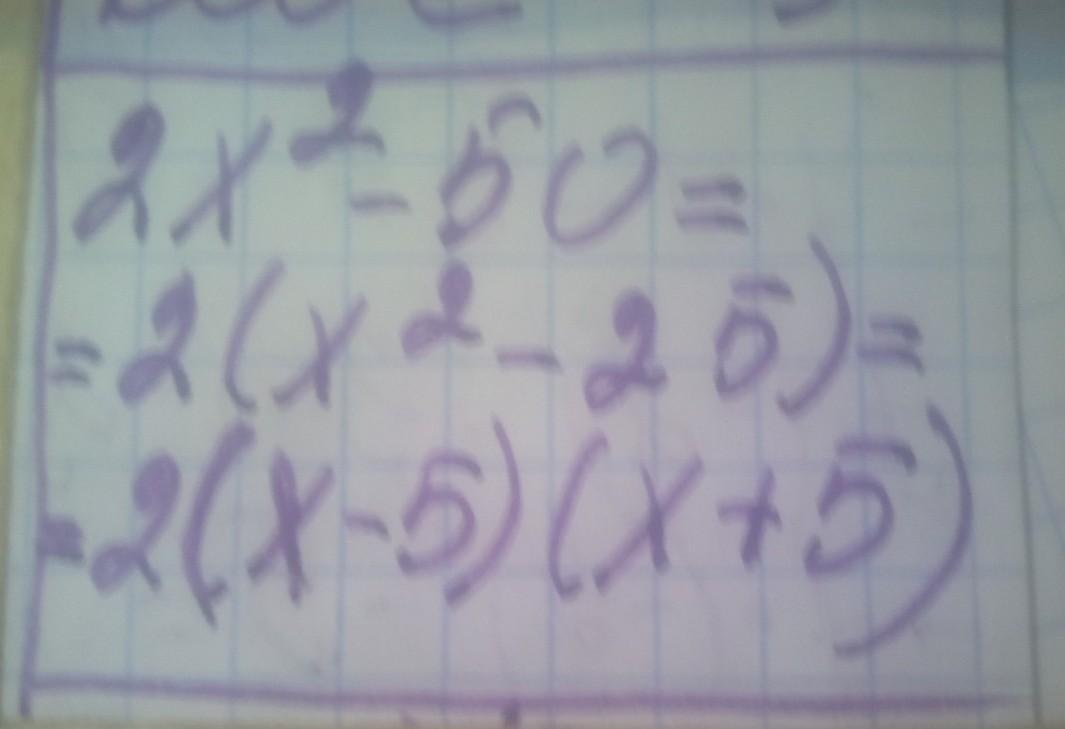 2x² - 50 =
= 2(x² - 25) =
= 2(x - 5)(x + 5)